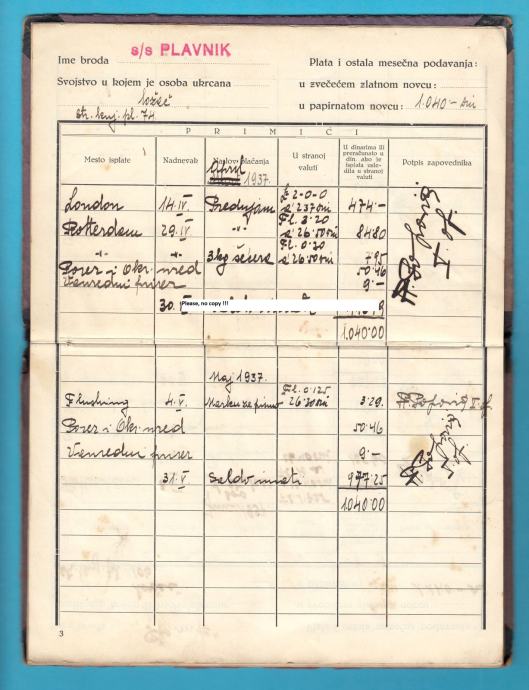 Ime broda s/s PLAVNIK
Plata i ostala mesečna podavanja:
Svojstvo u kojem je osoba ukrcana
u zvečećem zlatnom novcu:
ložač
u papirnatom novcu: 1.040.- din
Str. knj. pl. 74
PRIMICI
Mesto isplate Nadnevak Naslov plaćanja U stranoj valuti U dinarima ili preračunato u din. ako je isplata usledila u stranoj valuti Potpis zapovednika
April 1937.
London 14.IV Predujam £ 2-0-0 à 237 din 474.-
Rotterdam 29.IV -"- Fl. 3.20 à 26.50 din 84.80
-"- -"- 3 kg šećera Fl. 0.30 à 26.50 din 7.95
Porez i Okr. ured 50.46
Vanredni prirez 9.-
30. Please, no copy !!!
1.040.00
Maj 1937.
Flushing 4.V. Marka za pismo Fl. 0.125 26.30 din 3.29
Porez i Okr. ured 50.46
Vanredni prirez 9.-
31.V Saldo imati 977.25
1.040.00
3